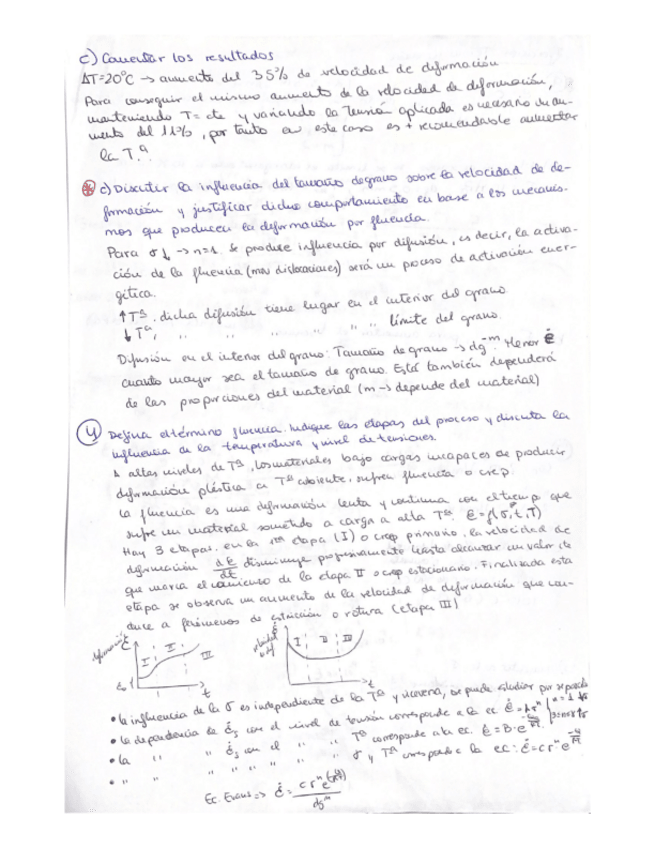 c) Comentar los resultados
ΔT=20°C → aumento del 35% de velocidad de deformación
Para conseguir el mismo aumento de la velocidad de deformación,
manteniendo T= cte y variando la tensión aplicada es necesario un au-
mento del 11%, por tanto en este caso es + recomendable aumentar
la T.ª
c) Discutir la influencia del tamaño de grano sobre la velocidad de de-
formación y justificar dicho comportamiento en base a los mecanis-
mos que producen la deformación por fluencia.
Para σ↓ → n=1. Se produce influencia por difusión, es decir, la activa-
ción de la fluencia (mov dislocaciones) será un proceso de activación ener-
gética.
↑Tª. dicha difusión tiene lugar en el interior del grano.
↓Tª, " " " " " " límite del grano.
Difusión en el interior del grano: Tamaño de grano → dg⁻ᵐ. Menor ε̇
cuanto mayor sea el tamaño de grano. Está también dependerá
de las proporciones del material (m → depende del material)
4 Defina el término fluencia. Indique las etapas del proceso y discuta la
influencia de la temperatura y nivel de tensiones.
A altos niveles de Tª, los materiales bajo cargas incapaces de producir
deformación plástica a Tª ambiente, sufren fluencia o creep.
La fluencia es una deformación lenta y continua con el tiempo que
sufre un material sometido a carga a alta Tª. ε=f(σ,t,T)
Hay 3 etapas. en la 1ra etapa (I) o creep primario, la velocidad de
deformación dε/dt disminuye progresivamente hasta alcanzar un valor cte
que marca el comienzo de la etapa II o creep estacionario. Finalizada esta
etapa se observa un aumento de la velocidad de deformación que con-
duce a fenómenos de estricción o rotura (etapa III)
deformación ε I II III t
ε̇ I II III t
• la influencia de la σ es independiente de la Tª y viceversa, se puede estudiar por separado
• la dependencia de ε̇s con el nivel de tensión corresponde a la ec ε̇=Aσⁿ
• la " " ε̇s con el " " Tª corresponde a la ec. ε̇=B·e^(-Q/RT)
• " " " " " " " σ y Tª corresponde la ec: ε̇=cσⁿe^(-Q/RT)
Ec. Evans => ε̇ =